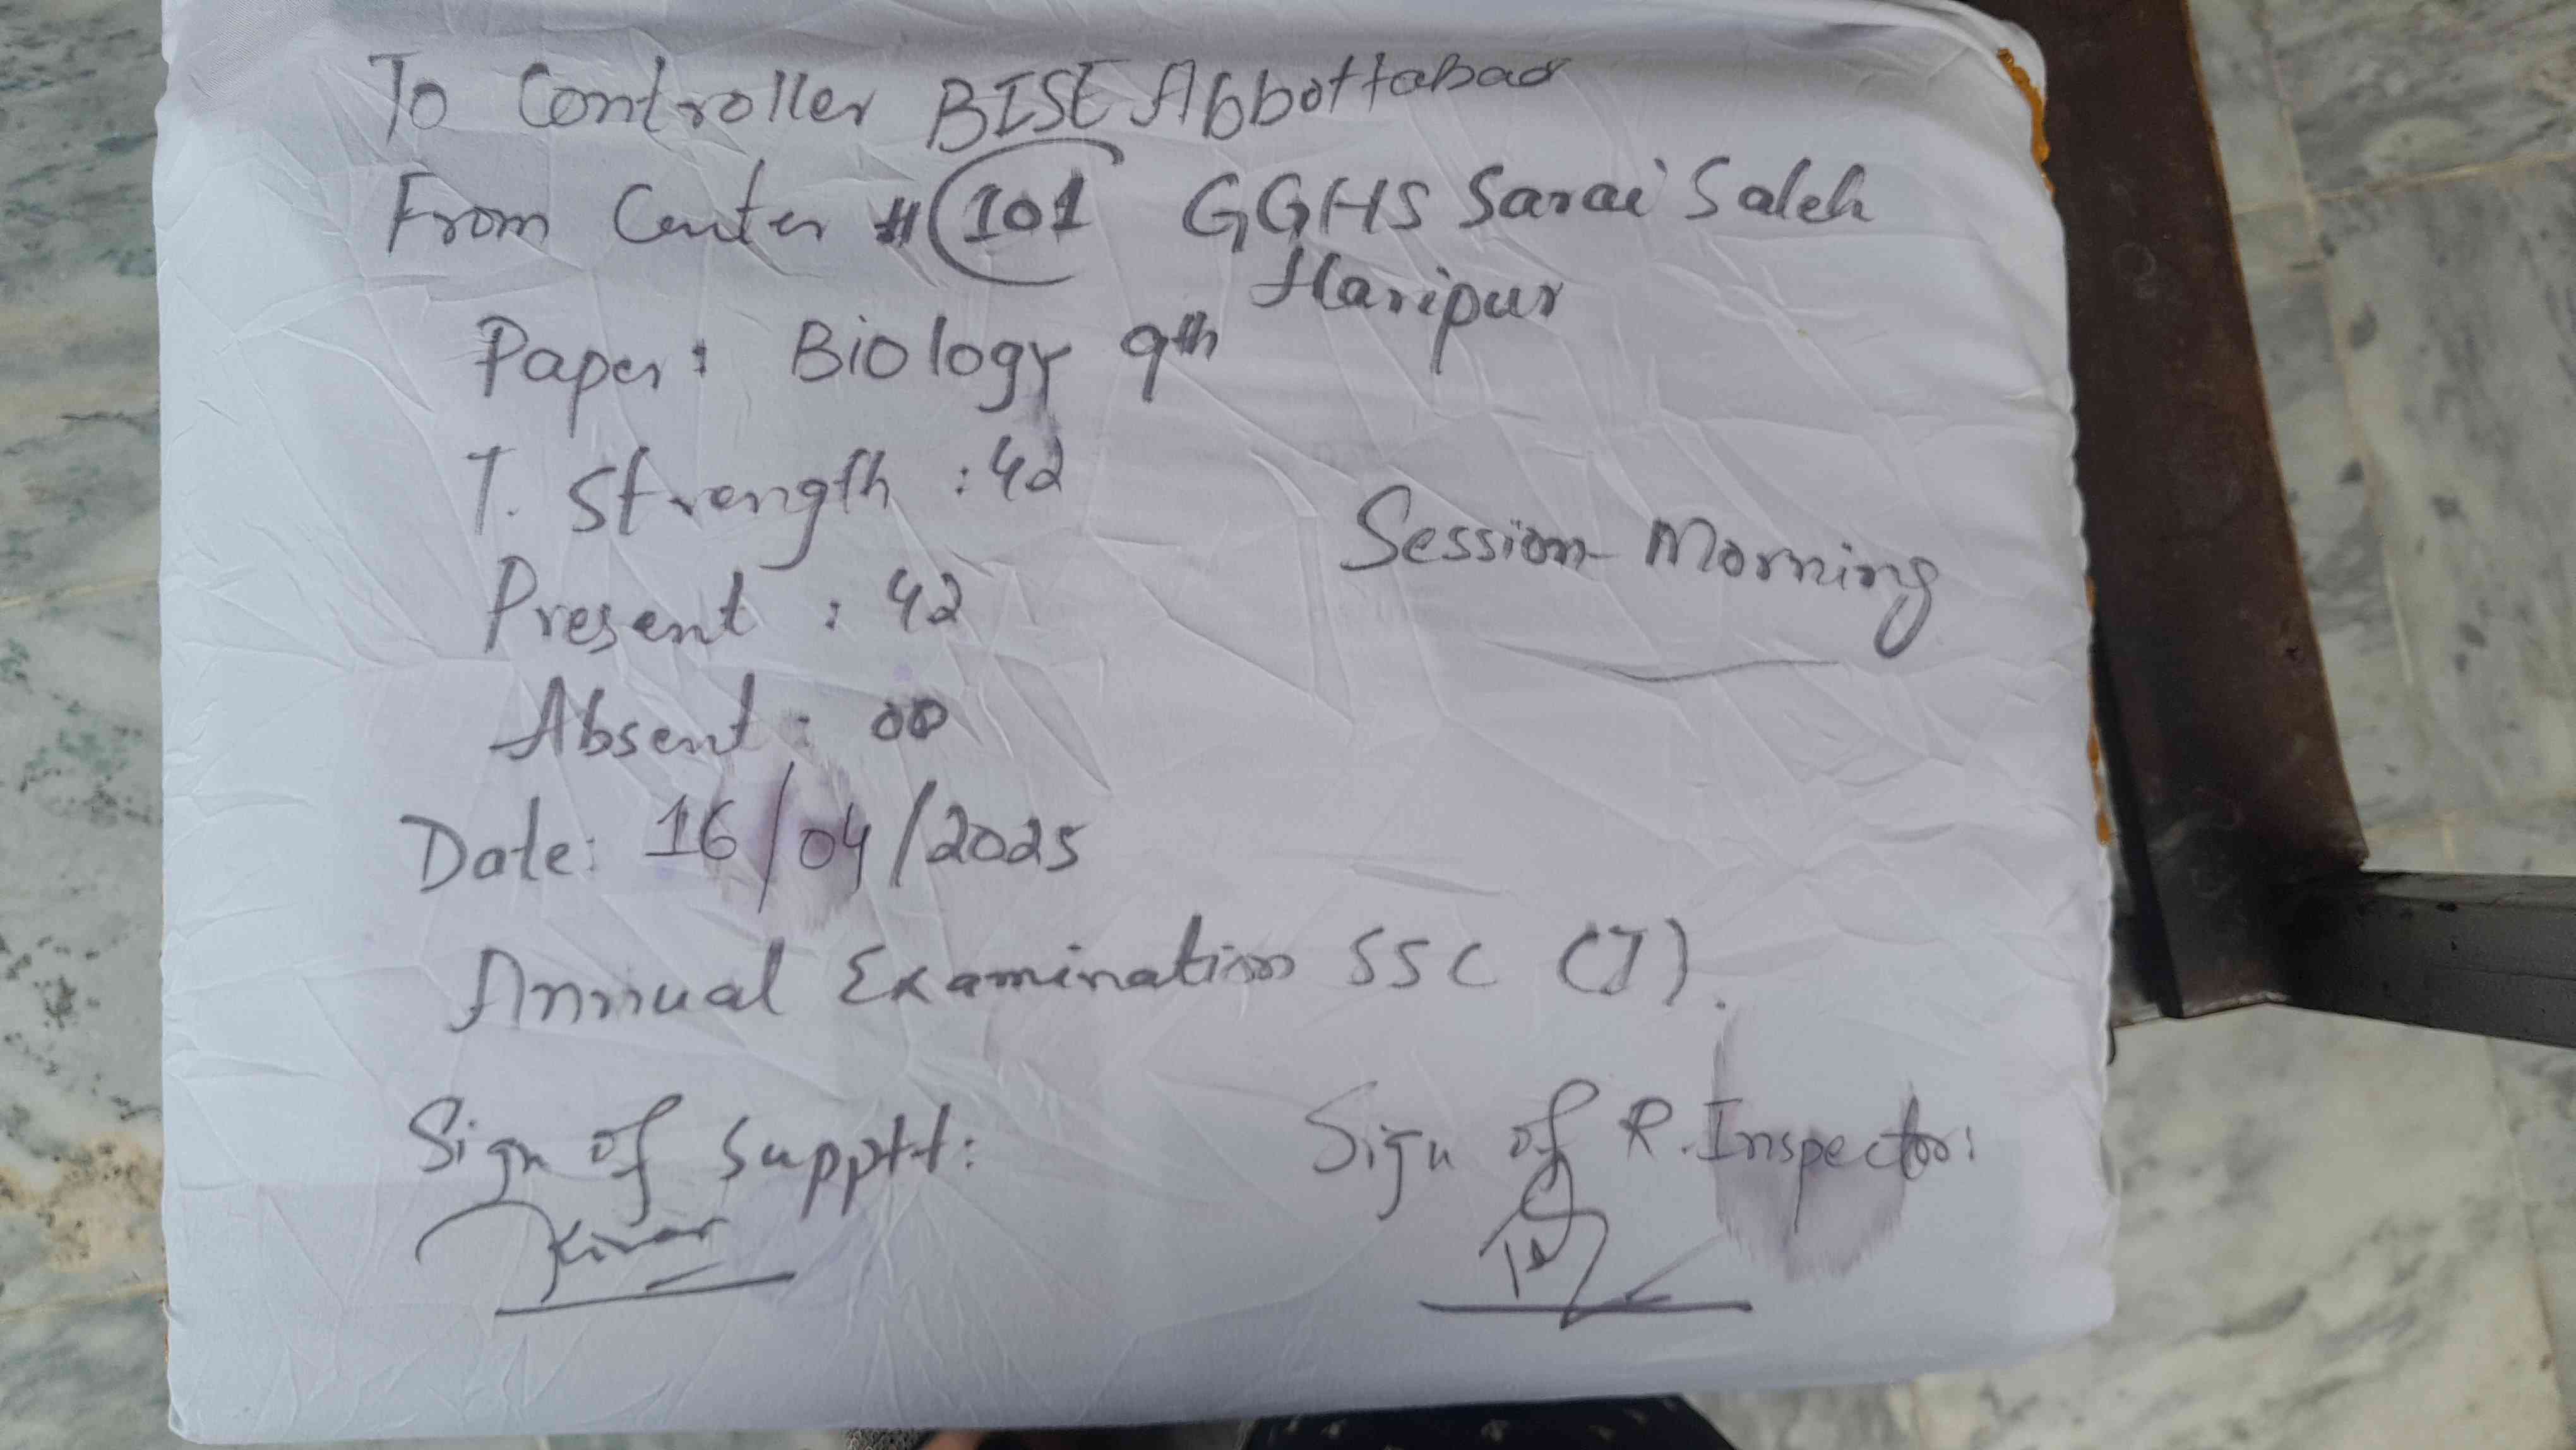 To Controller BISE Abbottabad
From Center # 101 GGHS Sarai Saleh
Haripur
Paper: Biology 9th
T. Strength : 42
Session Morning
Present : 42
Absent : 00
Date: 16/04/2025
Annual Examination SSC (I).
Sign of Supptt:
Sign of R. Inspector: